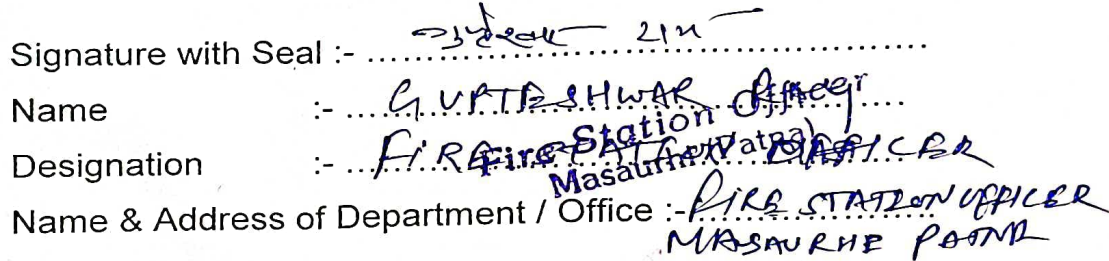 Signature with Seal :- गुप्तेश्वर राम
Name :- GUPTESHWAR
Designation :- FIRE STATION OFFICER
Fire Station Officer
Masaurhi (Patna)
Name & Address of Department / Office :- FIRE STATION OFFICER
MASAURHE PATNA